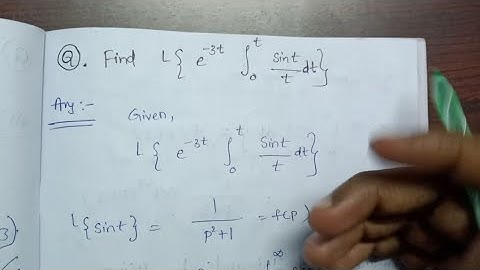 Q. Find L{ e^{-3t} ∫_0^t sint/t dt}
Ans:-
Given,
L{ e^{-3t} ∫_0^t sint/t dt}
L{sint} = 1/(p²+1) = f(p)